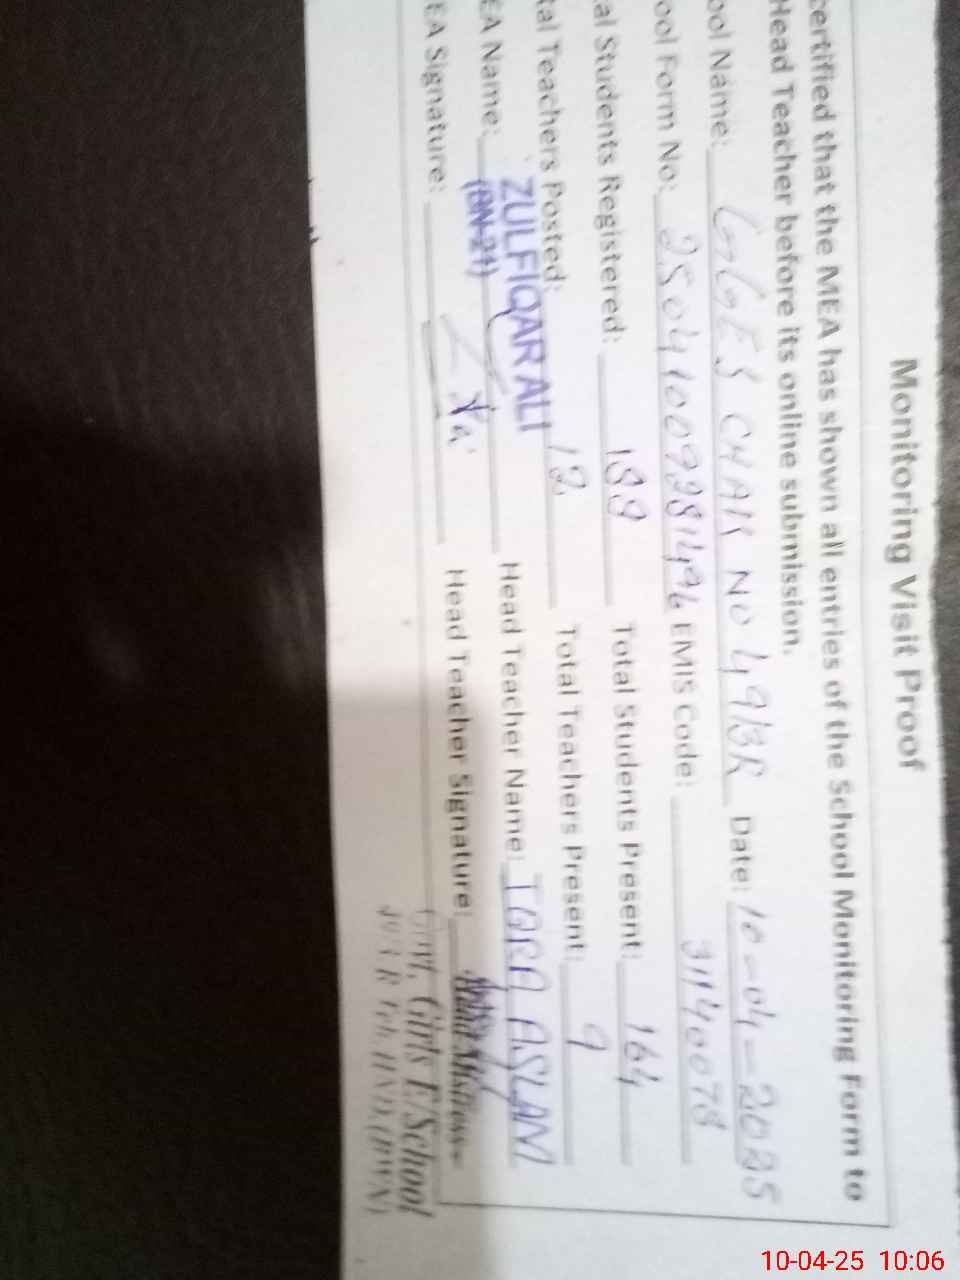 Monitoring Visit Proof
certified that the MEA has shown all entries of the School Monitoring Form to
Head Teacher before its online submission.
ool Name: GGES CHAK NO 49/3R Date: 10-04-2025
ool Form No: EMIS Code: 31140078
al Students Registered: 199 Total Students Present: 164
tal Teachers Posted: 12 Total Teachers Present: 9
EA Name: ZULFIQAR ALI Head Teacher Name: IQRA ASLAN
(BN-21)
EA Signature: Head Teacher Signature:
Head Mistress
Govt. Girls E/School
10-04-25 10:06